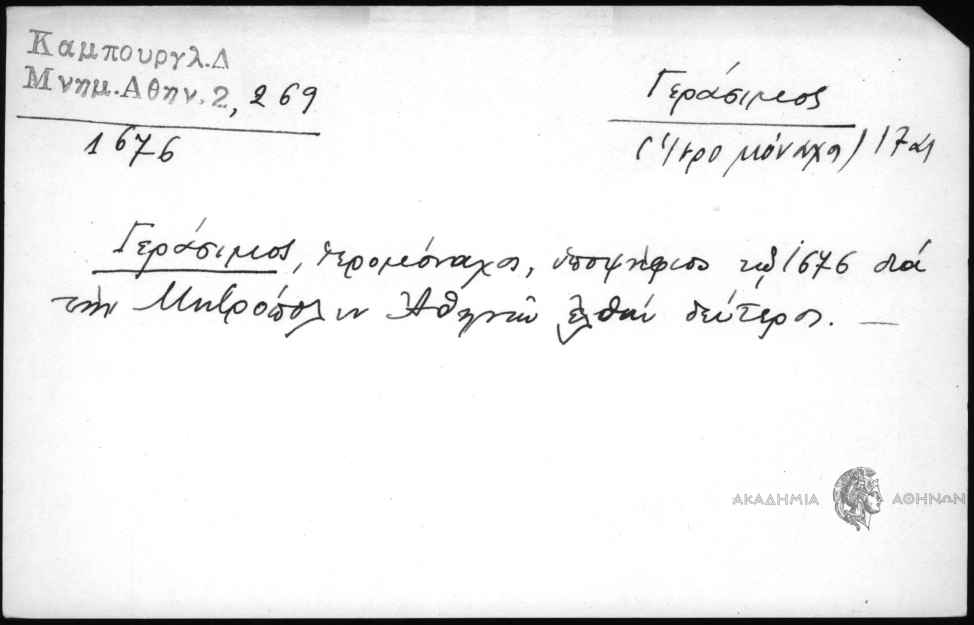 Καμπουργλ.Δ
Μνημ.Αθην.2, 269
1676
Γεράσιμος
(Ἱερομόναχος) 17 αι
Γεράσιμος, ἱερομόναχος, ὑποψήφιος τῷ 1676 διά
τὴν Μητρόπολιν Ἀθηνῶν ἐλθών δεύτερος. —
ΑΚΑΔΗΜΙΑ ΑΘΗΝΩΝ